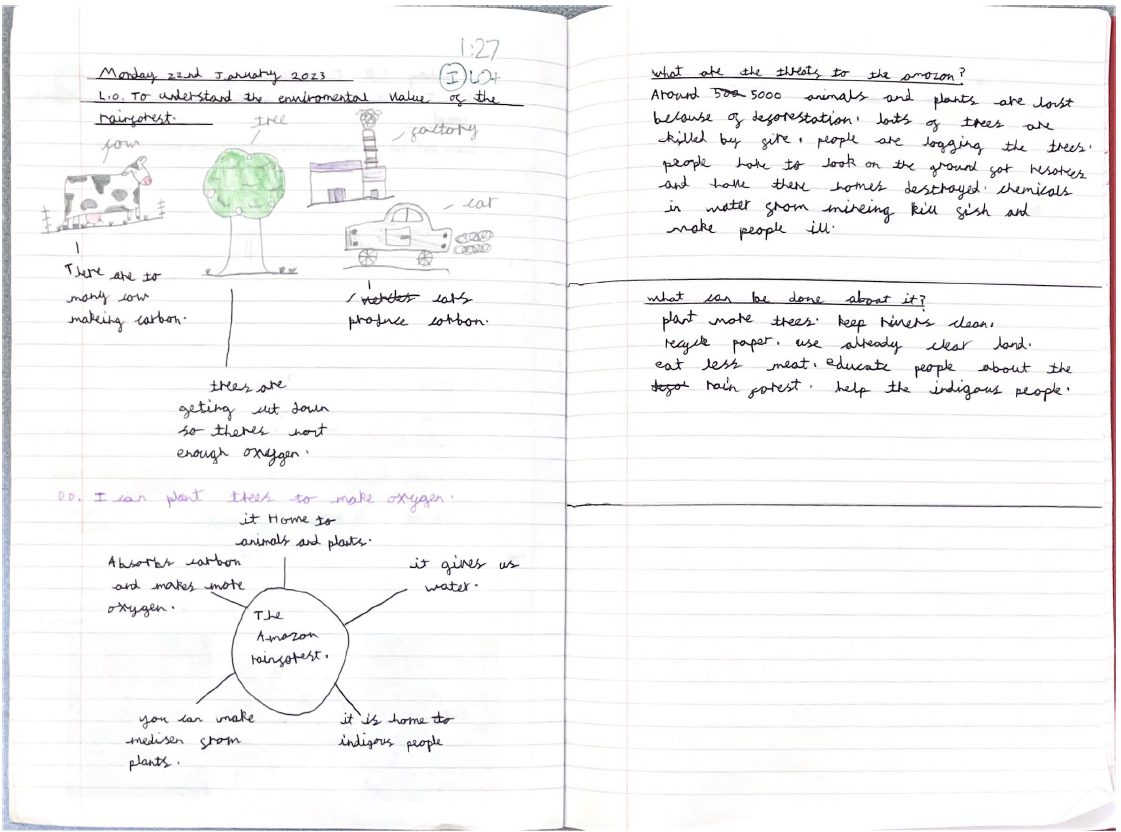 1:27
I LO+
Monday 22nd January 2023
L.O. To understand the enviromental value of the
rainforest.
cow
tree
factory
car
There are to
many cow
makeing carbon.
cars
produce carbon.
trees are
geting cut down
so theres nort
enough oxygen.
I can plant trees to make oxygen.
it Home to
animals and plants.
Absorbs carbon
and makes more
oxygen.
it gives us
water.
The
Amazon
rainforest.
you can make
medisen from
plants.
it is home to
indigous people
what are the threats to the amazon?
Around 500 5000 animals and plants are lorst
because of deforestation. lorts of trees are
killed by fire. people are logging the trees.
people have to look on the ground for resorces
and have there homes destroyed. chemicals
in water from mineing kill fish and
make people ill.
what can be done about it?
plant more trees. keep rivers clean.
recycle paper. use already clear land.
eat less meat. educate people about the
rain forest. help the indigous people.